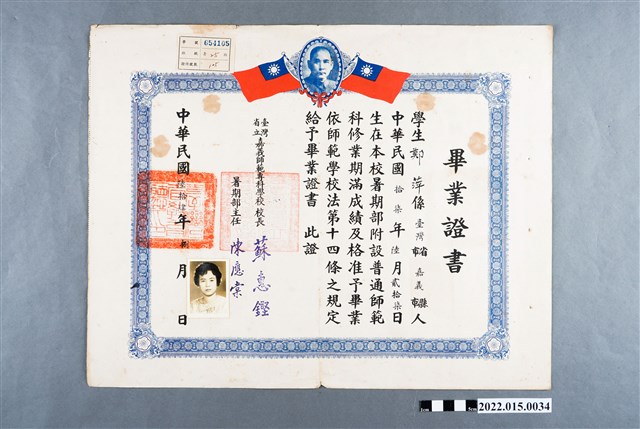 畢業證書
學生鄭萍係臺灣省市嘉義縣市人
中華民國拾柒年陸月貳拾柒日
生在本校暑期部附設普通師範
科修業期滿成績及格准予畢業
依師範學校法第十四條之規定
給予畢業證書 此證
臺灣省立嘉義師範專科學校校長 蘇惠鏗
暑期部主任 陳應棠
中華民國 年 月 日
654105
1cm 5cm
2022.015.0034